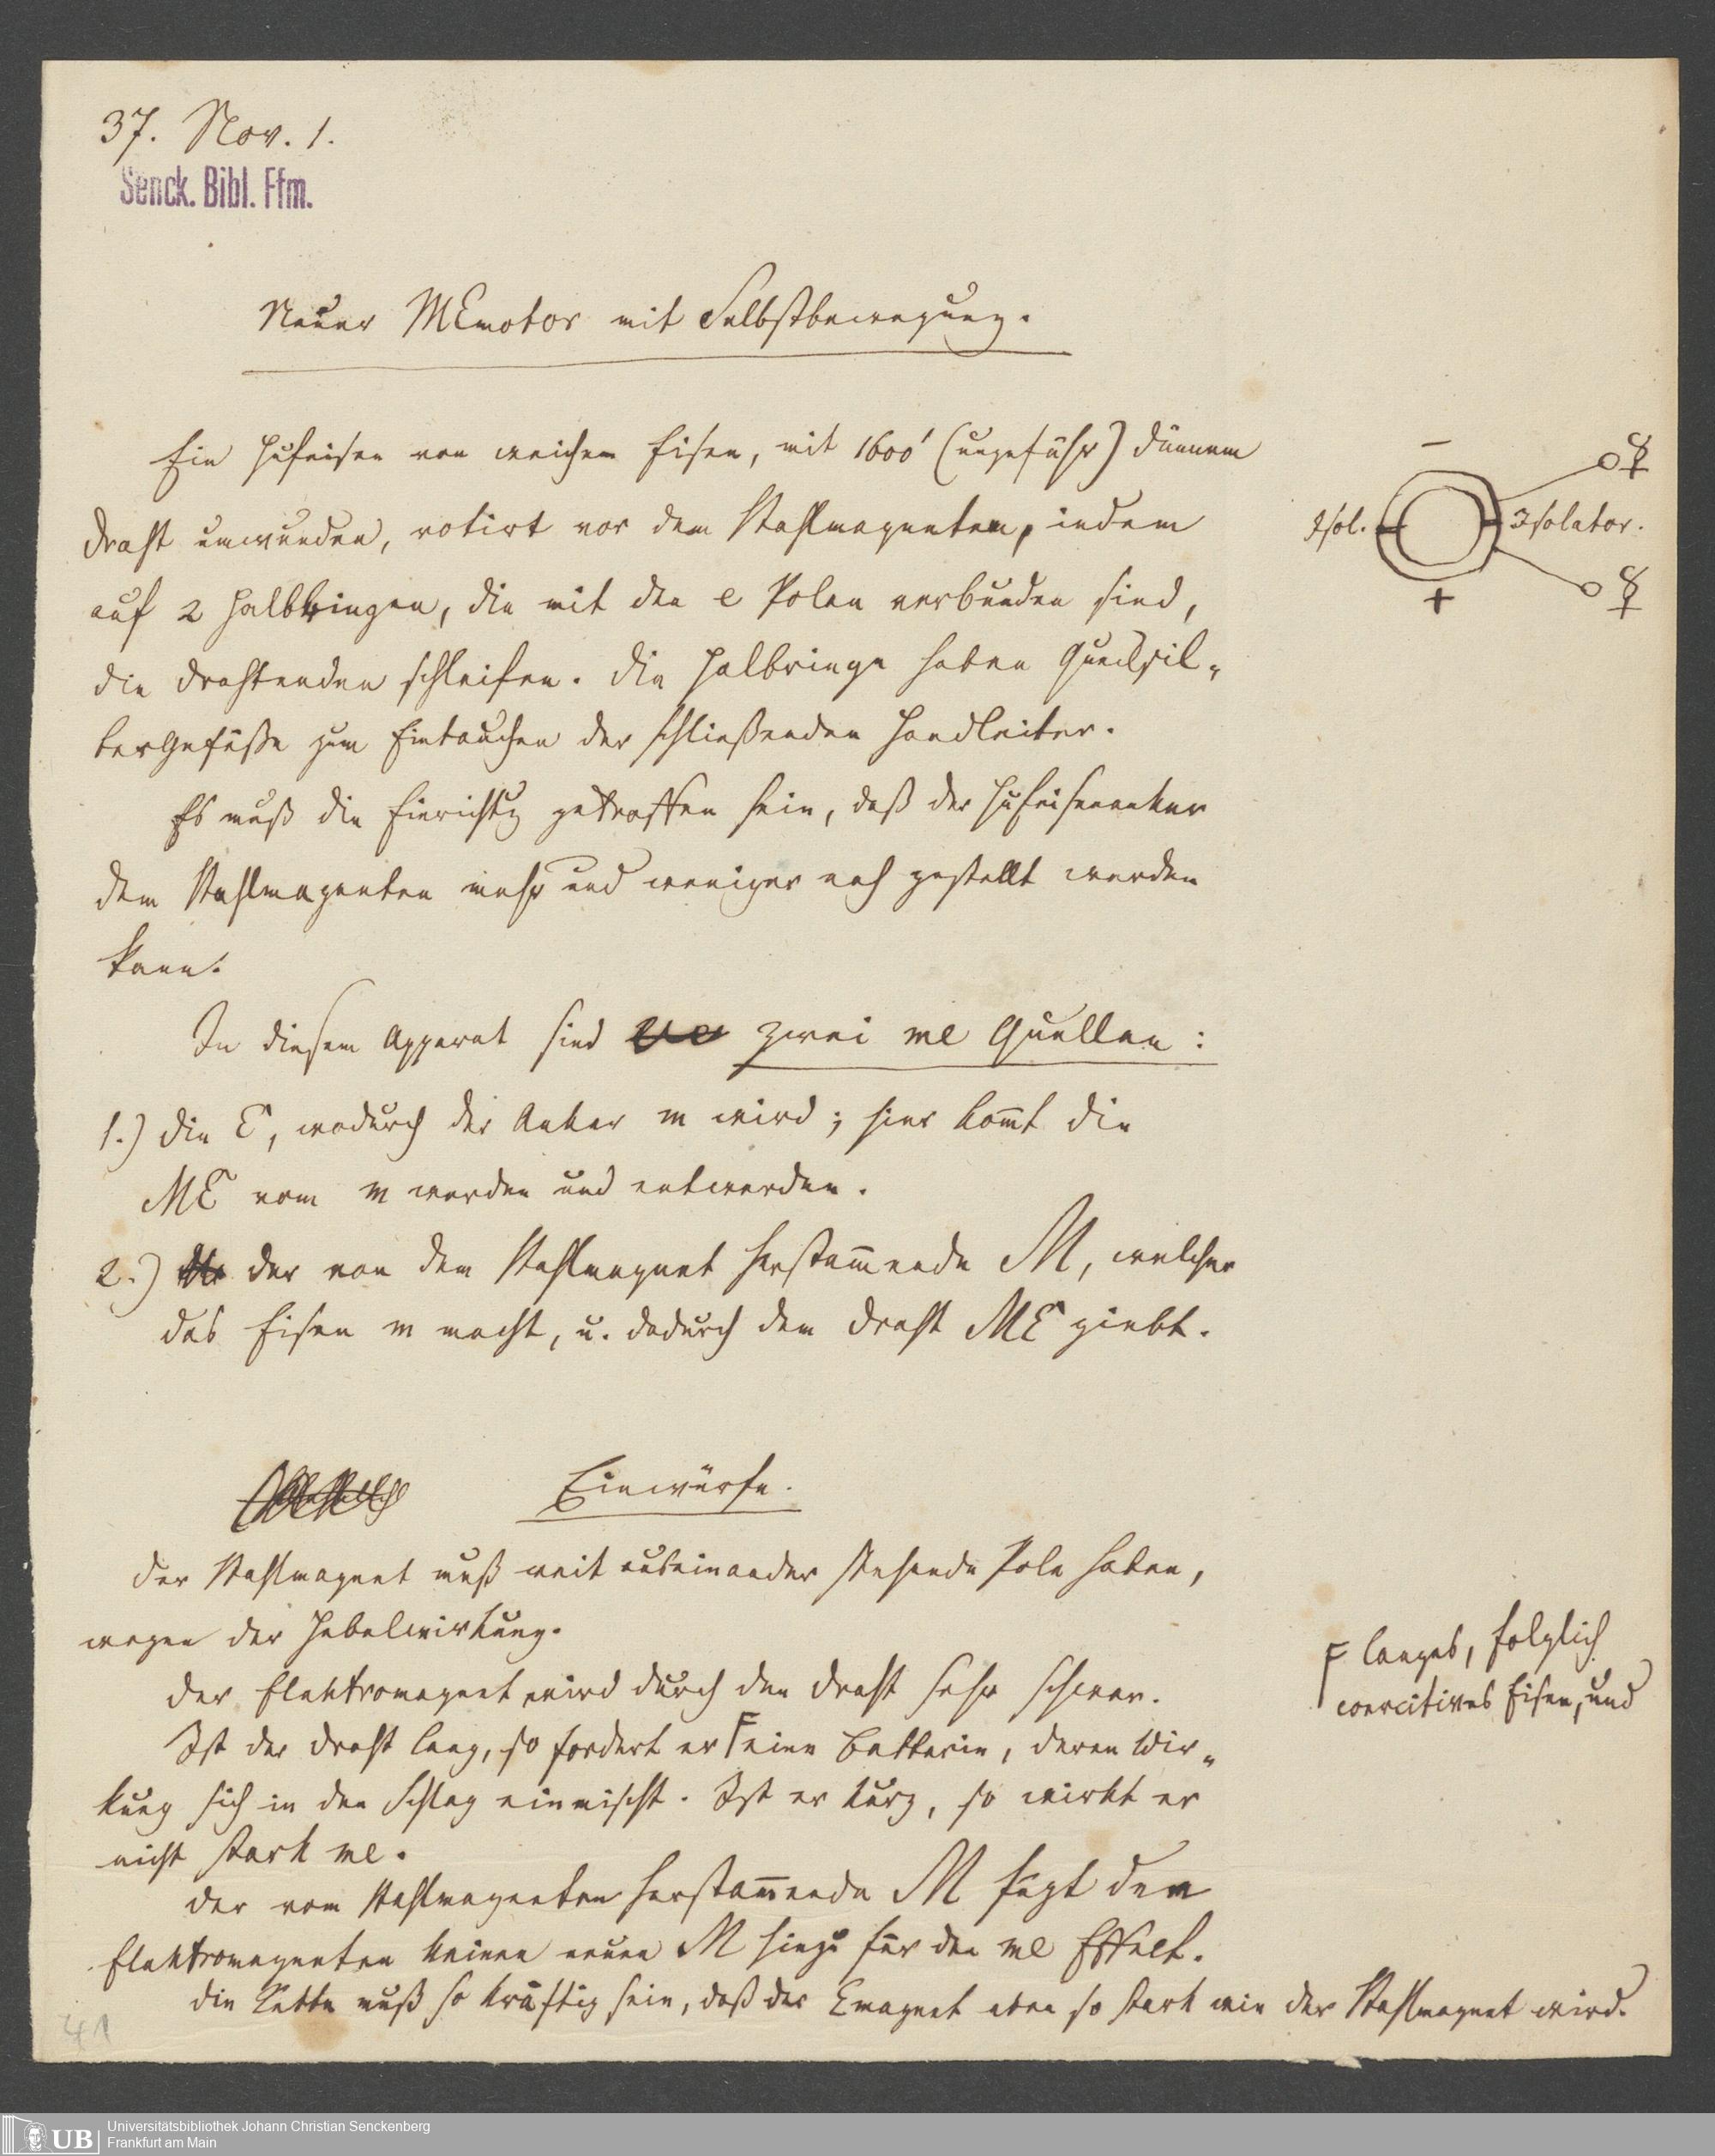 37. Nov. 1.
Senck. Bibl. Ffm.
Neuer MEmotor mit Selbstbewegung.
Ein Hufeisen von weichem Eisen, mit 1600' (ungefähr) dünnem
Draht umwunden, rotirt vor dem Stahlmagneten, indem
auf 2 Halbringen, die mit den e Polen verbunden sind,
die Drahtenden schleifen. Die Halbringe haben Quecksil-
bergefäße zum Eintauchen der schließenden Handleiter.
–
☿
Isol.
Isolator.
☿
+
Es muß die Einrichtg getroffen sein, daß der Hufeisenanker
dem Stahlmagneten mehr und weniger nah gestellt werden
kann.
In diesem Apparat sind zwei me Quellen:
1.) die E, wodurch der Anker m wird; hier kom̄t die
ME vom m werden und entwerden.
2.) der von dem Stahlmagnet herstam̄ende M, welcher
das Eisen m macht, u. dadurch dem Draht ME giebt.
Einwürfe.
Der Stahlmagnet muß weit auseinander stehende Pole haben,
wegen der Hebelwirkung.
Der Elektromagnet wird durch den Draht sehr schwer.
Ist der Draht lang, so fordert er F eine Batterie, deren Wir-
kung sich in den Schlag einmischt. Ist er kurz, so wirkt er
nicht stark me.
F langes, folglich
coercitives Eisen, und
Der vom Stahlmagneten herstam̄ende M fügt dem
Elektromagneten keinen neuen M hinzu für den me Effect.
Die Kette muß so kräftig sein, daß der Emagnet eben so stark wie der Stahlmagnet wird.
41
UB
Universitätsbibliothek Johann Christian Senckenberg
Frankfurt am Main